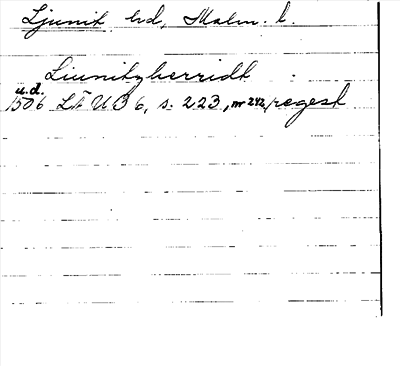 Ljunit hd, Malm. l.
Liunitzherridt
u.d.
1506 LÄUB 6, s. 223, nr 242, regest